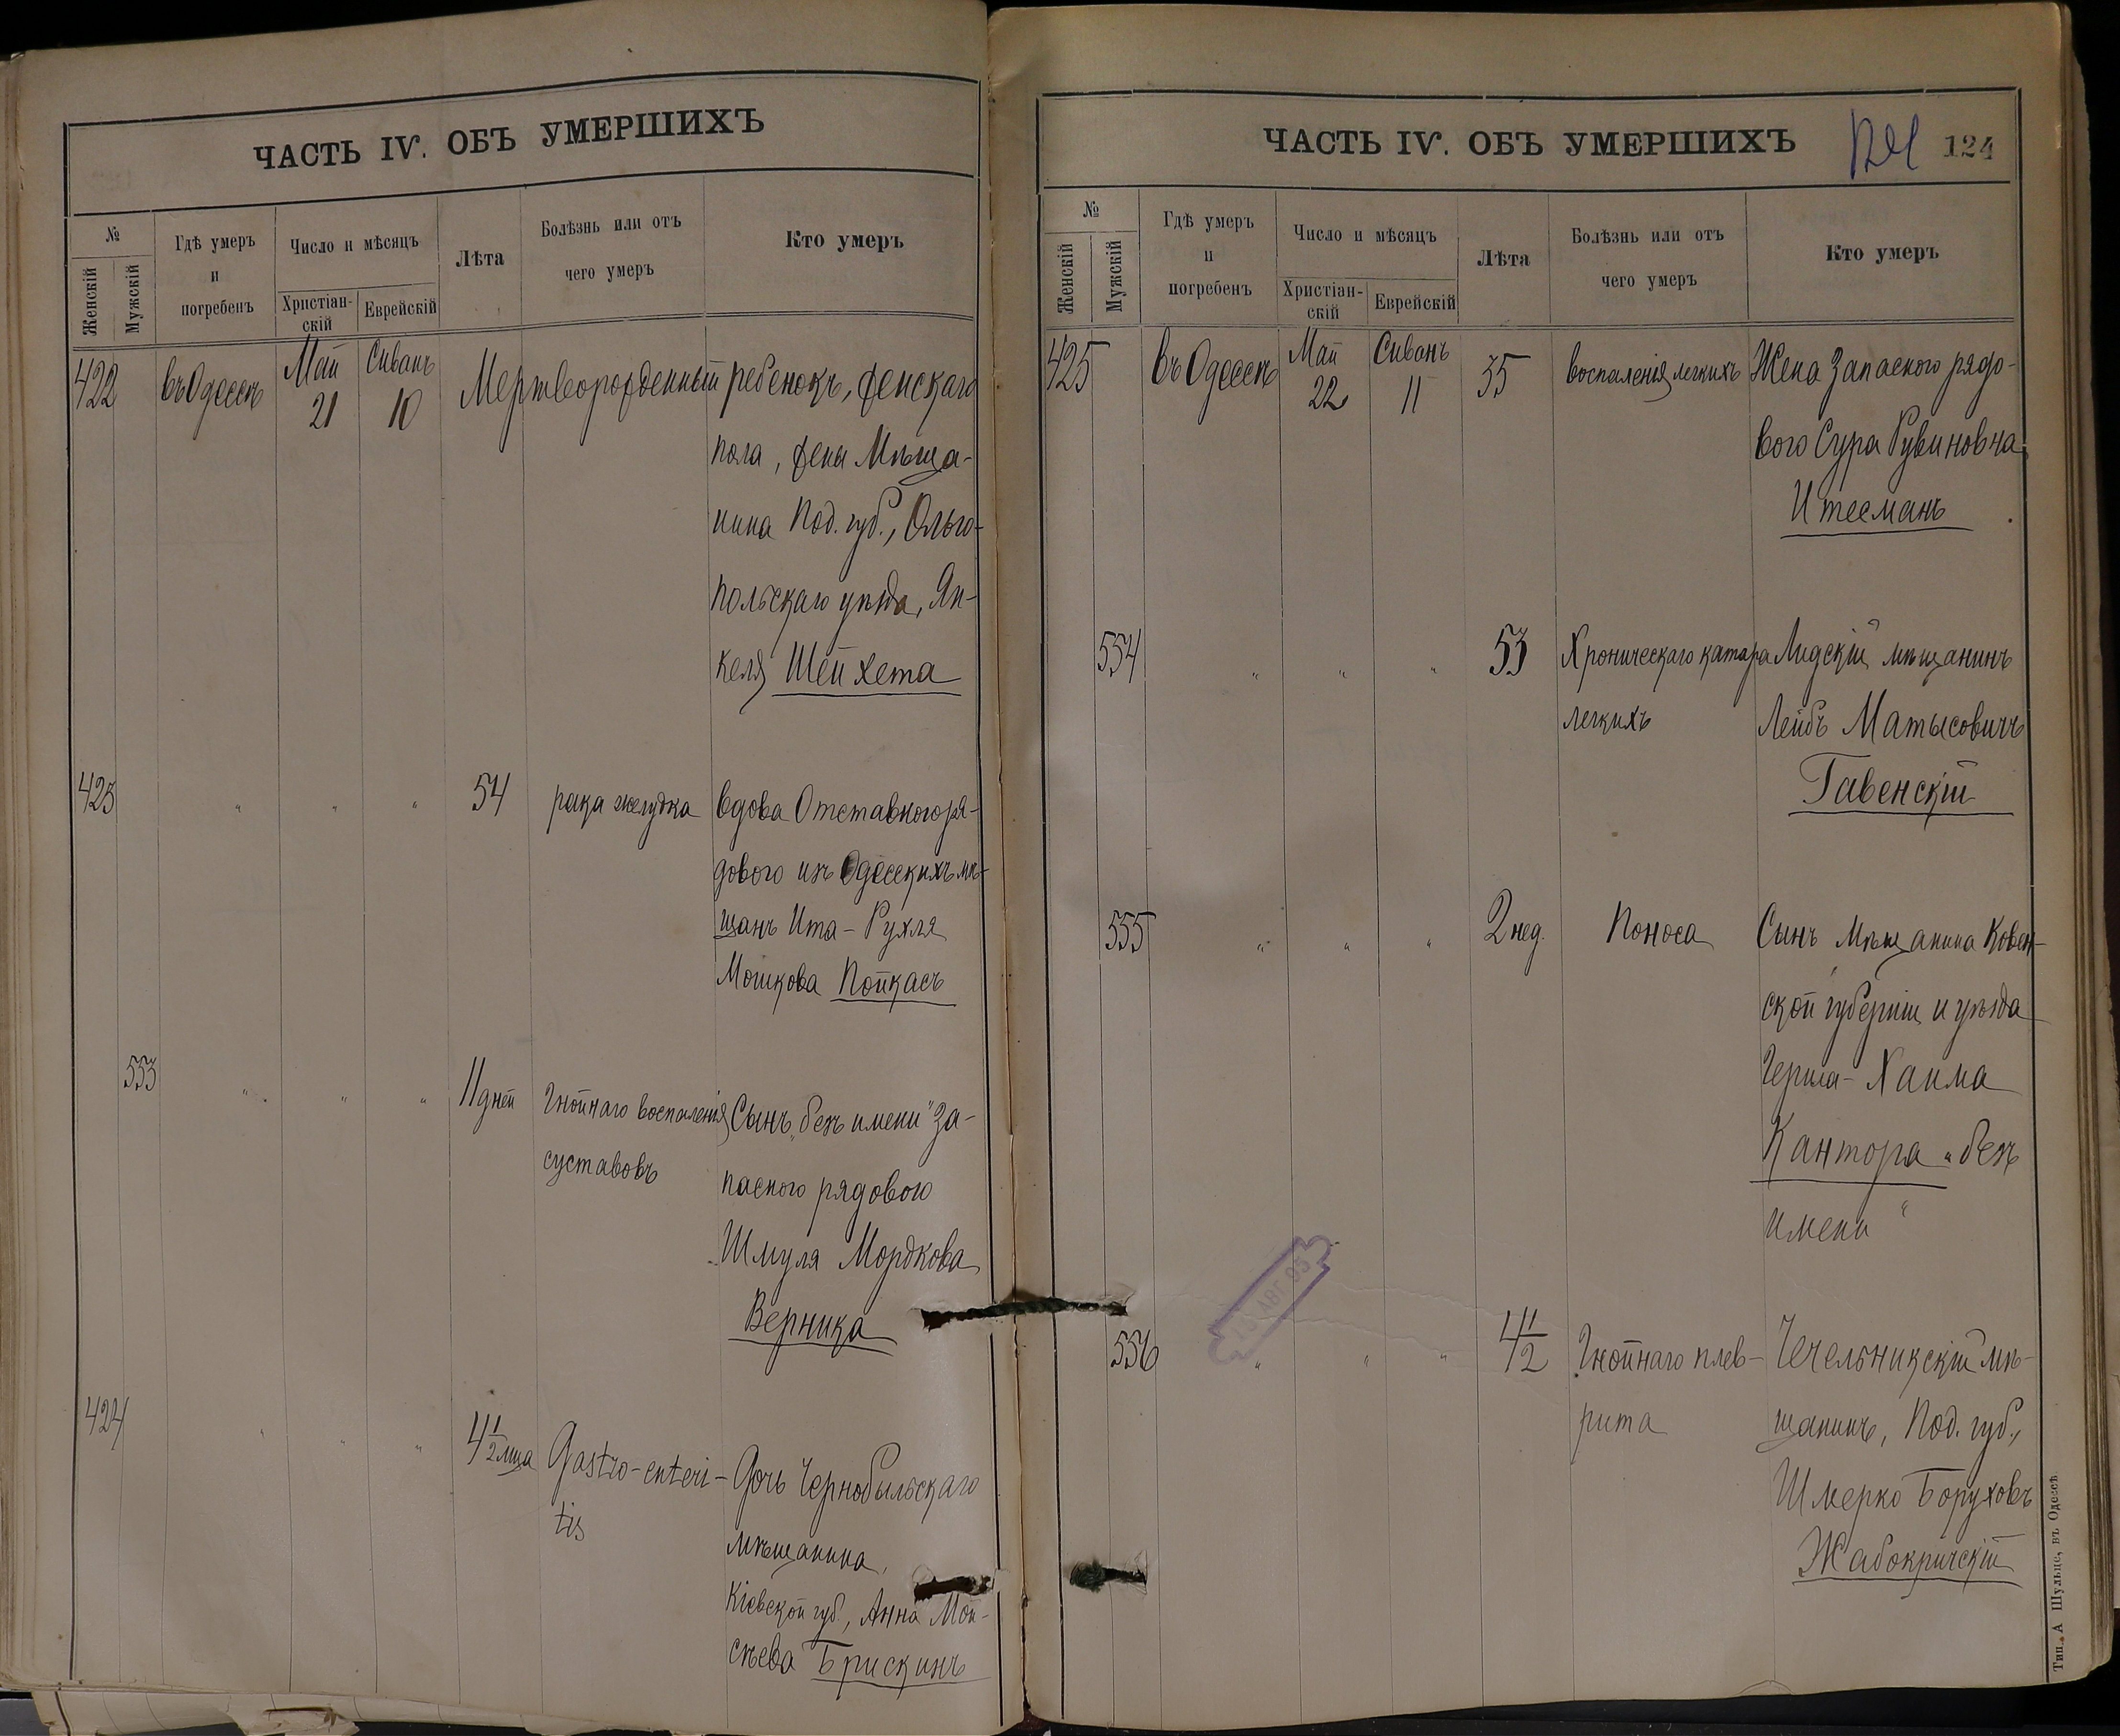 ЧАСТЬ IV. ОБЪ УМЕРШИХЪ
№
Женскій
Мужскій
Гдѣ умеръ
и
погребенъ
Число и мѣсяцъ
Христіан-
скій
Еврейскій
Лѣта
Болѣзнь или отъ
чего умеръ
Кто умеръ
422 въ Одессѣ Май 21 Сиванъ 10 Мертворожденный ребенокъ, женскаго
пола, жены Мѣща-
нина Под. губ., Ольго-
польскаго уѣзда, Ян-
келя Шейхета
423 " " " 54 рака желудка вдова Отставного ря-
дового изъ Одесскихъ мѣ-
щанъ Ита-Рухля
Мошкова Пойкасъ
553 " " " 11 дней Гнойнаго воспаленія Сынъ „безъ имени" за-
суставовъ паснаго рядового
Шмуля Мордкова
Верника
424 " " " 4 1/2 мца Gastro-enteri- Дочь Чернобыльскаго
tis мѣщанина,
Кіевской губ., Анна Мои-
сѣева Брискинъ
ЧАСТЬ IV. ОБЪ УМЕРШИХЪ 124
№
Женскій
Мужскій
Гдѣ умеръ
и
погребенъ
Число и мѣсяцъ
Христіан-
скій
Еврейскій
Лѣта
Болѣзнь или отъ
чего умеръ
Кто умеръ
425 въ Одессѣ Май 22 Сиванъ 11 35 воспаленія легкихъ Жена Запаснаго рядо-
вого Сура Рувиновна
554 " " " 53 Хроническаго катара Лидскій мѣщанинъ
легкихъ Лейбъ Матысовичъ
Гавенскій
555 " " " 2 нед. Поноса Сынъ Мѣщанина Ковен-
ской губерніи и уѣзда
Хаима
Кантора „безъ
имени"
АВГ 95
556 " " " 4 1/2 Гнойнаго плев- Чечельникскій мѣ-
рита щанинъ, Под. губ.,
Шмерко Боруховъ
Жабокричскій
Тип. А Шульце, въ Одессѣ